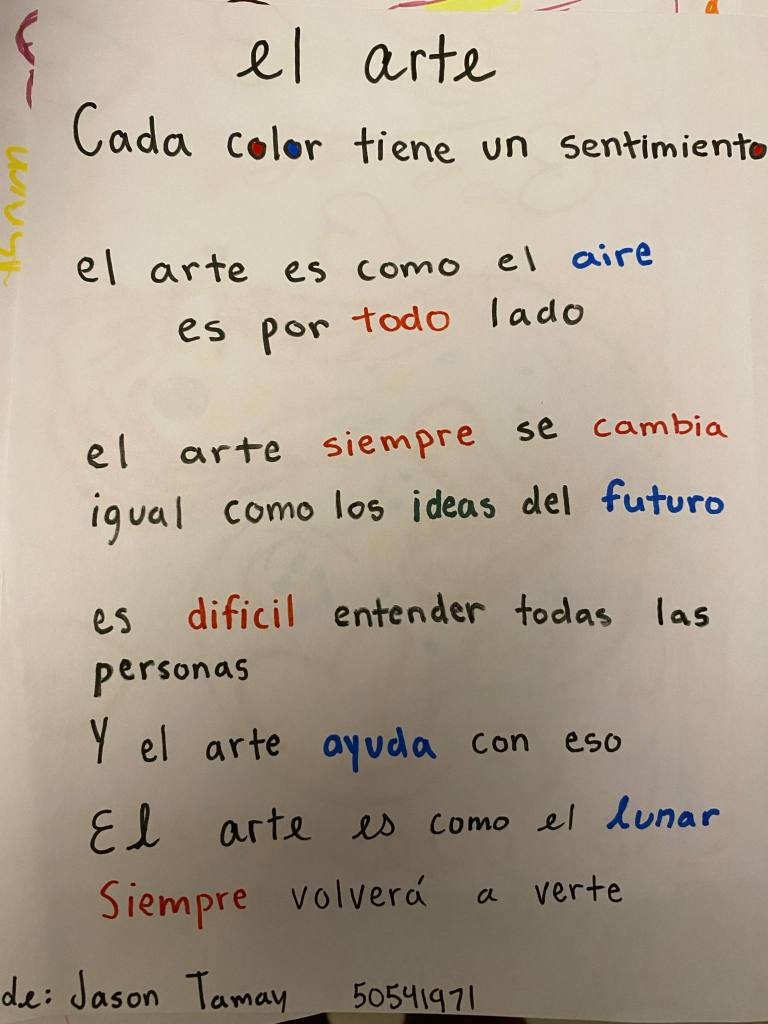 el arte
Cada color tiene un sentimiento
el arte es como el aire
es por todo lado
el arte siempre se cambia
igual como los ideas del futuro
es dificil entender todas las
personas
Y el arte ayuda con eso
El arte es como el lunar
Siempre volverá a verte
de: Jason Tamay 50541971